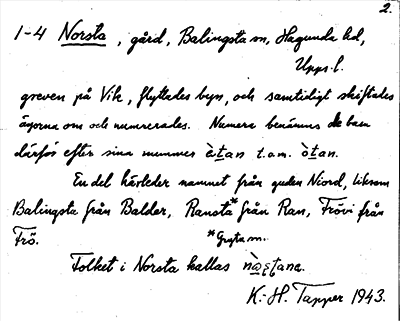 2.
1-4 Norsta, gård, Balingsta sn, Hagunda hd,
Upps. l.
greven på Vik, flyttades byn, och samtidigt skiftades
ägorna om och numrerades. Numera benämns de bara
därför efter sina nummer ètan t.o.m. òtan.
En del härleder namnet från guden Niord, liksom
Balingsta från Balder, Ransta* från Ran, Frövi från
Frö.
*Gryta sn.
Folket i Norsta kallas
K.-H. Tapper 1943.